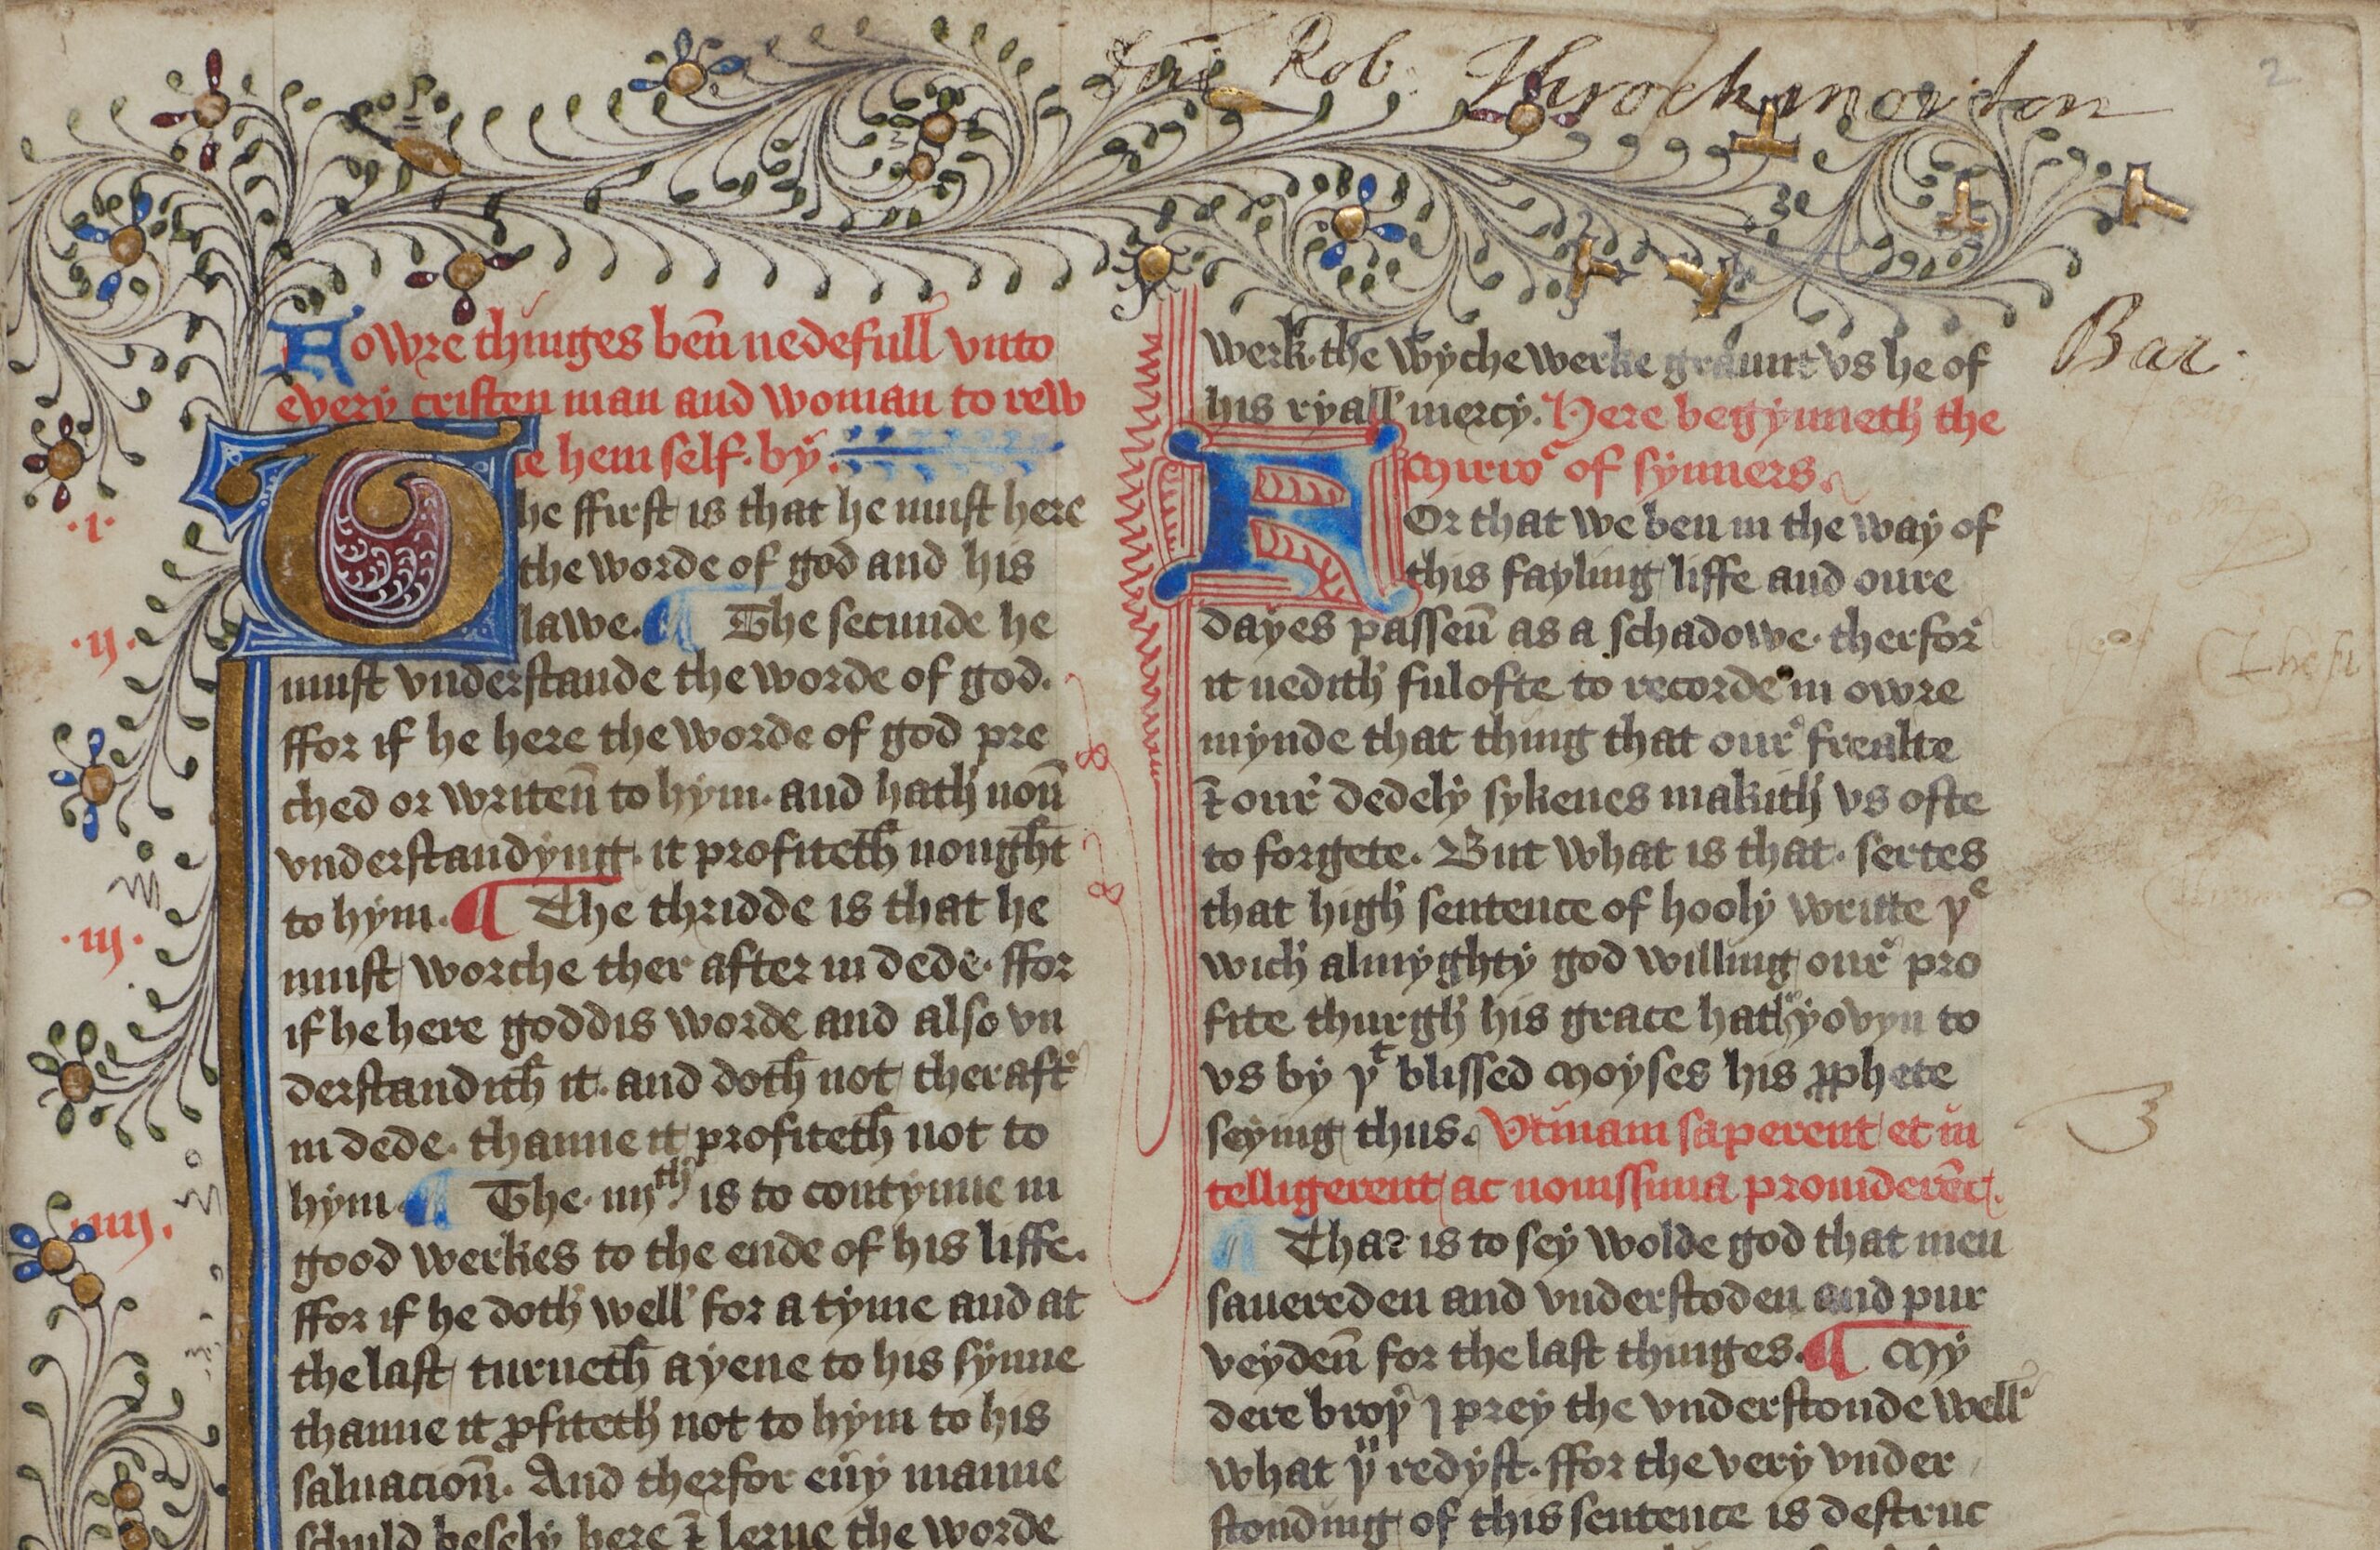 Rob: Throckmorton
2
Bar:
Fowre thinges ben̄ nedefull vnto
every cristen man and woman to rew
le hem self. by.
The ffirst is that he must here
the worde of god and his
lawe. ¶ The secunde he
must vnderstande the worde of god.
ffor if he here the worde of god pre
ched or writen̄ to hym. and hath non̄
vnderstandyng. it profiteth nought
to hym. ¶ The thridde is that he
must worche ther after in dede. ffor
if he here goddis worde and also vn
derstandith it. and doth not theraft᾿
in dede. thanne it profiteth not to
hym ¶ The .iiijth. is to contynue in
good werkes to the ende of his liffe.
ffor if he doth well for a tyme and at
the last turneth ayene to his synne
thanne it ꝓfiteth not to hym to his
saluacion̄. And therfor eu̾y manne
schuld besely here ⁊ lerne the worde
.i.
.ij.
.iij.
.iiij.
werk. the wyche werke graunt vs he of
his ryall mercy. Here begynneth the
Mirroͬ of synners.
For that we ben in the way of
this fayling liffe and oure
dayes passen̄ as a schadowe. therfor
it nedith fulofte to recorde in owre
mynde that thing that ourᵉ frealte
⁊ our᾿ dedely sykenes makith vs ofte
to forgete. But what is that. sertes
that high sentence of hooly writte yᵉ
wich almyghty god willing our᾿ pro
fite thurgh his grace hath yovyn to
vs by yᵗ blissed Moyses his ꝓphete
seying thus. Vtinam saperent et in
telligerent ac nouissima prouiderēt.
¶ That is to sey wolde god that men
sauereden and vnderstoden and pur
veyden̄ for the last thinges. ¶ My
dere broy᾿ I prey the vnderstonde well
what yᵘ redyst. ffor the very vnder
stonding of this sentence is destruc